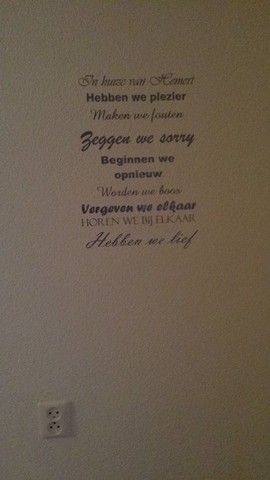 In huize van Hemert
Hebben we plezier
Maken we fouten
Zeggen we sorry
Beginnen we
opnieuw
Worden we boos
Vergeven we elkaar
HOREN WE BIJ ELKAAR
Hebben we lief